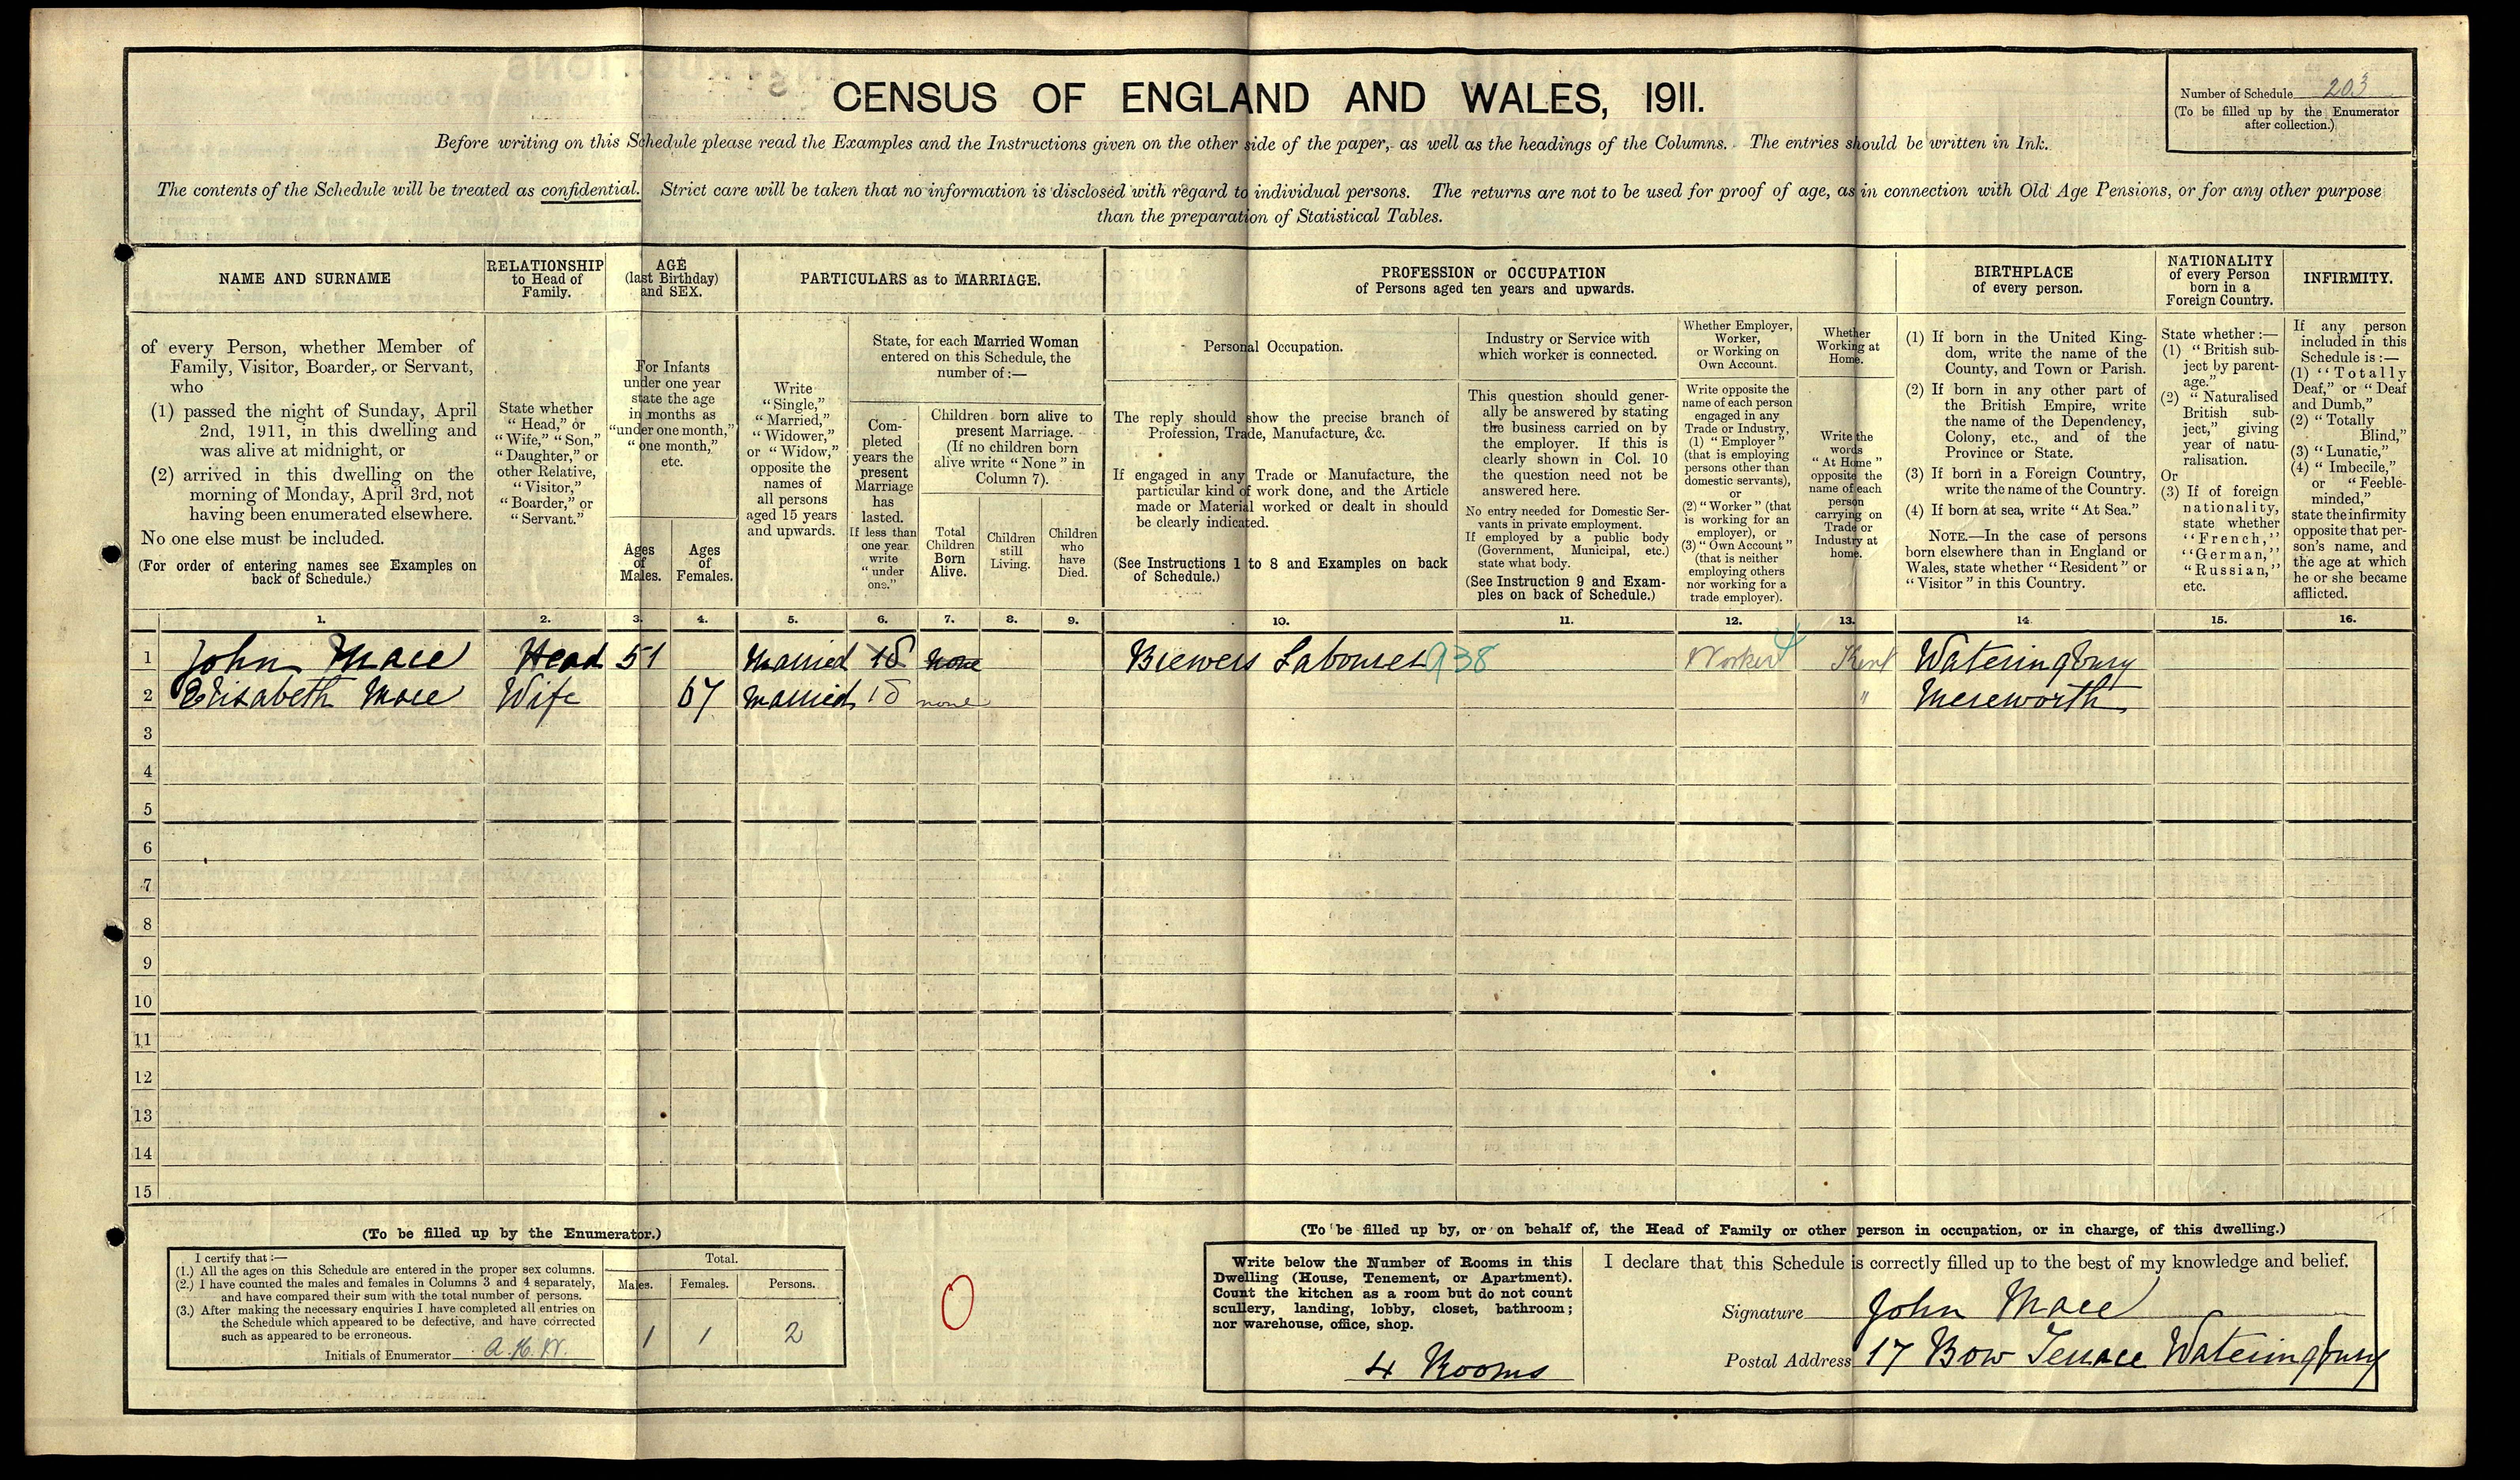 CENSUS OF ENGLAND AND WALES, 1911.
Number of Schedule 203
(To be filled up by the Enumerator
after collection.)
Before writing on this Schedule please read the Examples and the Instructions given on the other side of the paper, as well as the headings of the Columns. The entries should be written in Ink.
The contents of the Schedule will be treated as confidential. Strict care will be taken that no information is disclosed with regard to individual persons. The returns are not to be used for proof of age, as in connection with Old Age Pensions, or for any other purpose
than the preparation of Statistical Tables.
NAME AND SURNAME
of every Person, whether Member of
Family, Visitor, Boarder, or Servant,
who
(1) passed the night of Sunday, April
2nd, 1911, in this dwelling and
was alive at midnight, or
(2) arrived in this dwelling on the
morning of Monday, April 3rd, not
having been enumerated elsewhere.
No one else must be included.
(For order of entering names see Examples on
back of Schedule.)
RELATIONSHIP
to Head of
Family.
State whether
"Head," or
"Wife," "Son,"
"Daughter," or
other Relative,
"Visitor,"
"Boarder," or
"Servant."
AGE
(last Birthday)
and SEX.
For Infants
under one year
state the age
in months as
"under one month,"
"one month,"
etc.
Ages
of
Males.
Ages
of
Females.
PARTICULARS as to MARRIAGE.
Write
"Single,"
"Married,"
"Widower,"
or "Widow,"
opposite the
names of
all persons
aged 15 years
and upwards.
State, for each Married Woman
entered on this Schedule, the
number of:—
Com-
pleted
years the
present
Marriage
has
lasted.
If less than
one year
write
"under
one."
Children born alive to
present Marriage.
(If no children born
alive write "None" in
Column 7).
Total
Children
Born
Alive.
Children
still
Living.
Children
who
have
Died.
PROFESSION or OCCUPATION
of Persons aged ten years and upwards.
Personal Occupation.
The reply should show the precise branch of
Profession, Trade, Manufacture, &c.
If engaged in any Trade or Manufacture, the
particular kind of work done, and the Article
made or Material worked or dealt in should
be clearly indicated.
(See Instructions 1 to 8 and Examples on back
of Schedule.)
Industry or Service with
which worker is connected.
This question should gener-
ally be answered by stating
the business carried on by
the employer. If this is
clearly shown in Col. 10
the question need not be
answered here.
No entry needed for Domestic Ser-
vants in private employment.
If employed by a public body
(Government, Municipal, etc.)
state what body.
(See Instruction 9 and Exam-
ples on back of Schedule.)
Whether Employer,
Worker,
or Working on
Own Account.
Write opposite the
name of each person
engaged in any
Trade or Industry,
(1) "Employer"
(that is employing
persons other than
domestic servants),
or
(2) "Worker" (that
is working for an
employer), or
(3) "Own Account"
(that is neither
employing others
nor working for a
trade employer).
Whether
Working at
Home.
Write the
words
"At Home"
opposite the
name of each
person
carrying on
Trade or
Industry at
home.
BIRTHPLACE
of every person.
(1) If born in the United King-
dom, write the name of the
County, and Town or Parish.
(2) If born in any other part of
the British Empire, write
the name of the Dependency,
Colony, etc., and of the
Province or State.
(3) If born in a Foreign Country,
write the name of the Country.
(4) If born at sea, write "At Sea."
NOTE.—In the case of persons
born elsewhere than in England or
Wales, state whether "Resident" or
"Visitor" in this Country.
NATIONALITY
of every Person
born in a
Foreign Country.
State whether:—
(1) "British sub-
ject by parent-
age."
(2) "Naturalised
British sub-
ject," giving
year of natu-
ralisation.
Or
(3) If of foreign
nationality,
state whether
"French,"
"German,"
"Russian,"
etc.
INFIRMITY.
If any person
included in this
Schedule is:—
(1) "Totally
Deaf," or "Deaf
and Dumb,"
(2) "Totally
Blind,"
(3) "Lunatic,"
(4) "Imbecile,"
or "Feeble-
minded,"
state the infirmity
opposite that per-
son's name, and
the age at which
he or she became
afflicted.
1. 2. 3. 4. 5. 6. 7. 8. 9. 10. 11. 12. 13. 14. 15. 16.
1 John Mace Head 51 Married 18 none Brewers Labourer 938 Worker Kent Wateringbury
2 Elisabeth Mace Wife 67 Married 18 none " Mereworth
3
4
5
6
7
8
9
10
11
12
13
14
15
(To be filled up by the Enumerator.)
I certify that:—
(1.) All the ages on this Schedule are entered in the proper sex columns.
(2.) I have counted the males and females in Columns 3 and 4 separately,
and have compared their sum with the total number of persons.
(3.) After making the necessary enquiries I have completed all entries on
the Schedule which appeared to be defective, and have corrected
such as appeared to be erroneous.
Initials of Enumerator
Total.
Males. Females. Persons.
1 1 2
0
(To be filled up by, or on behalf of, the Head of Family or other person in occupation, or in charge, of this dwelling.)
Write below the Number of Rooms in this
Dwelling (House, Tenement, or Apartment).
Count the kitchen as a room but do not count
scullery, landing, lobby, closet, bathroom;
nor warehouse, office, shop.
4 Rooms
I declare that this Schedule is correctly filled up to the best of my knowledge and belief.
Signature John Mace
Postal Address 17 Bow Terrace Wateringbury